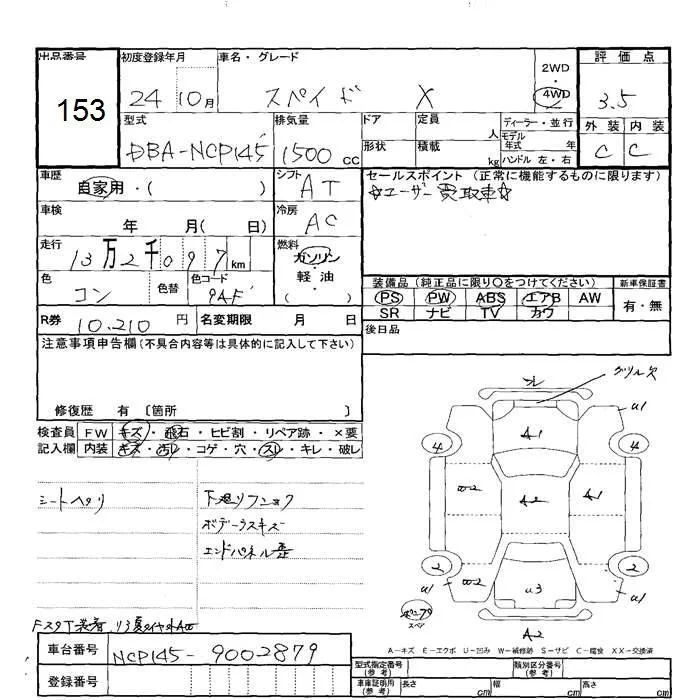 出品番号 153
初度登録年月 24 10月
車名・グレード スペイド X
2WD・4WD
評価点 3.5
型式 DBA-NCP145
排気量 1500 cc
ドア
定員 人
形状
積載 kg
ディーラー・並行
モデル年式 年
ハンドル 左・右
外装 内装
C C
車歴 自家用・( )
シフト AT
セールスポイント (正常に機能するものに限ります)
☆ユーザー買取車☆
車検 年 月( 日)
冷房 AC
走行 13万2千097km
燃料 ガソリン・軽油( )
色 コン
色替
色コード 9AF
装備品(純正品に限り○をつけてください)
新車保証書
PS PW ABS エアB AW
有・無
SR ナビ TV カワ
R券 10,210円
名変期限 月 日
後日品
注意事項申告欄(不具合内容等は具体的に記入して下さい)
修復歴 有 〔箇所 〕
検査員 FW キズ・飛石・ヒビ割・リペア跡・×要
記入欄 内装 キズ・汚レ・コゲ・穴・スレ・キレ・破レ
シートヘタリ
ボデーラスキズ
グリル欠
スレ
U1
A1
4 4
W2 A2 A1
2 2
U1 W2 U3 U1
A2
A-キズ E-エクボ U-凹み W-補修跡 S-サビ C-腐食 XX-交換済
車台番号 NCP145-9002879
登録番号
型式指定番号(参考)
類別区分番号(参考)
車庫証明用(参考) 長さ cm 幅 cm 高さ cm